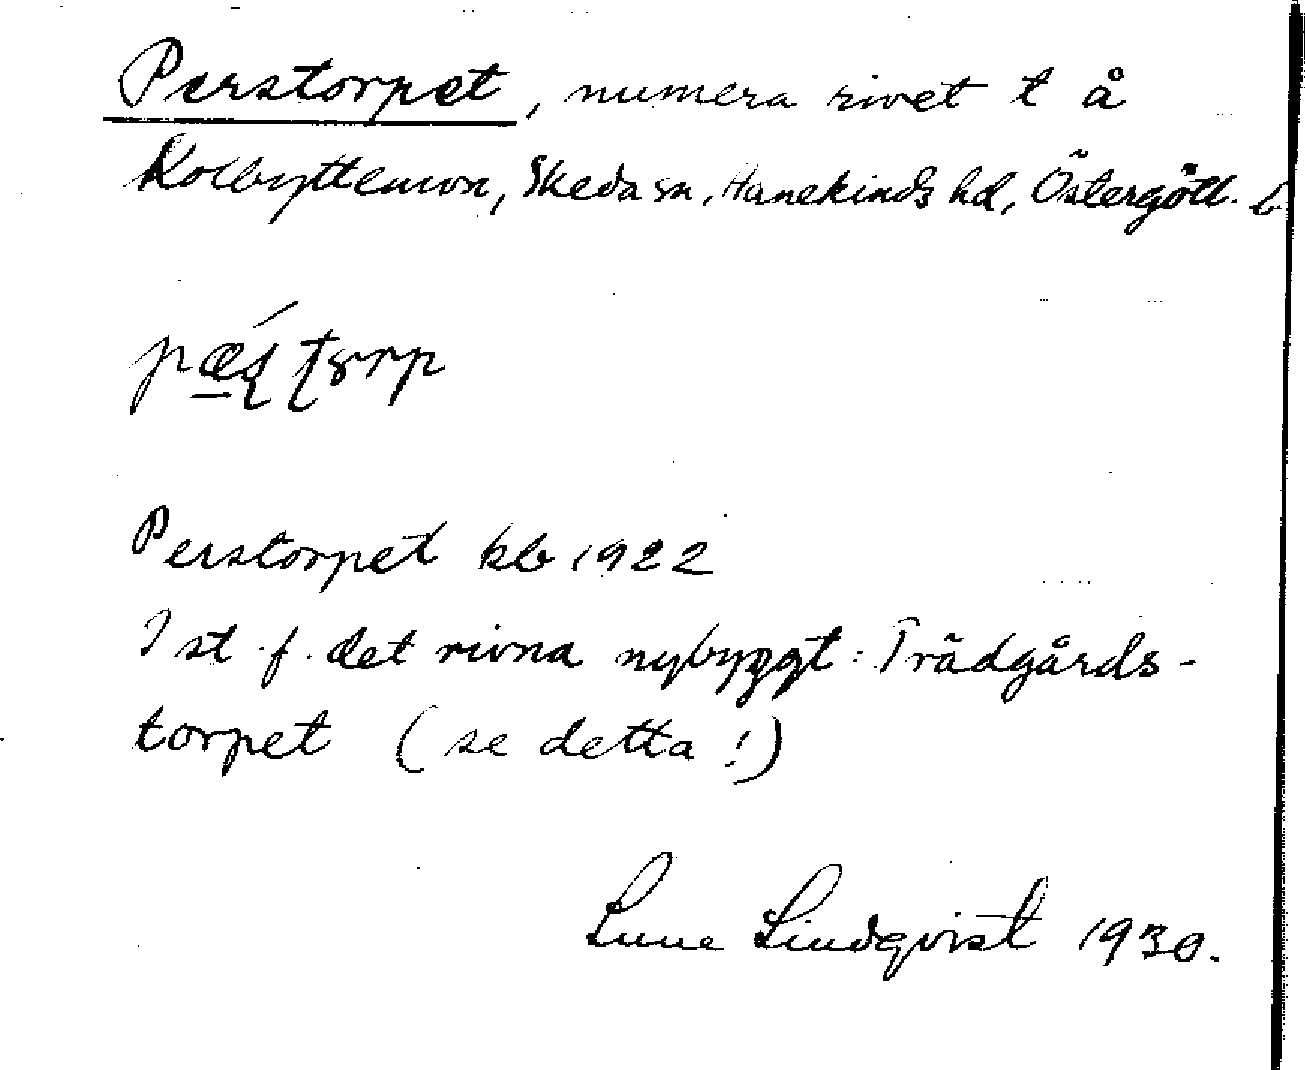 Perstorpet, numera rivet t å
Kolbyttemon, Skeda sn, Hanekinds hd, Östergötl. l
Perstorpet kb 1922
I st. f. det rivna nybyggt: Trädgårds-
torpet (se detta!)
Sune Lindqvist 1930.